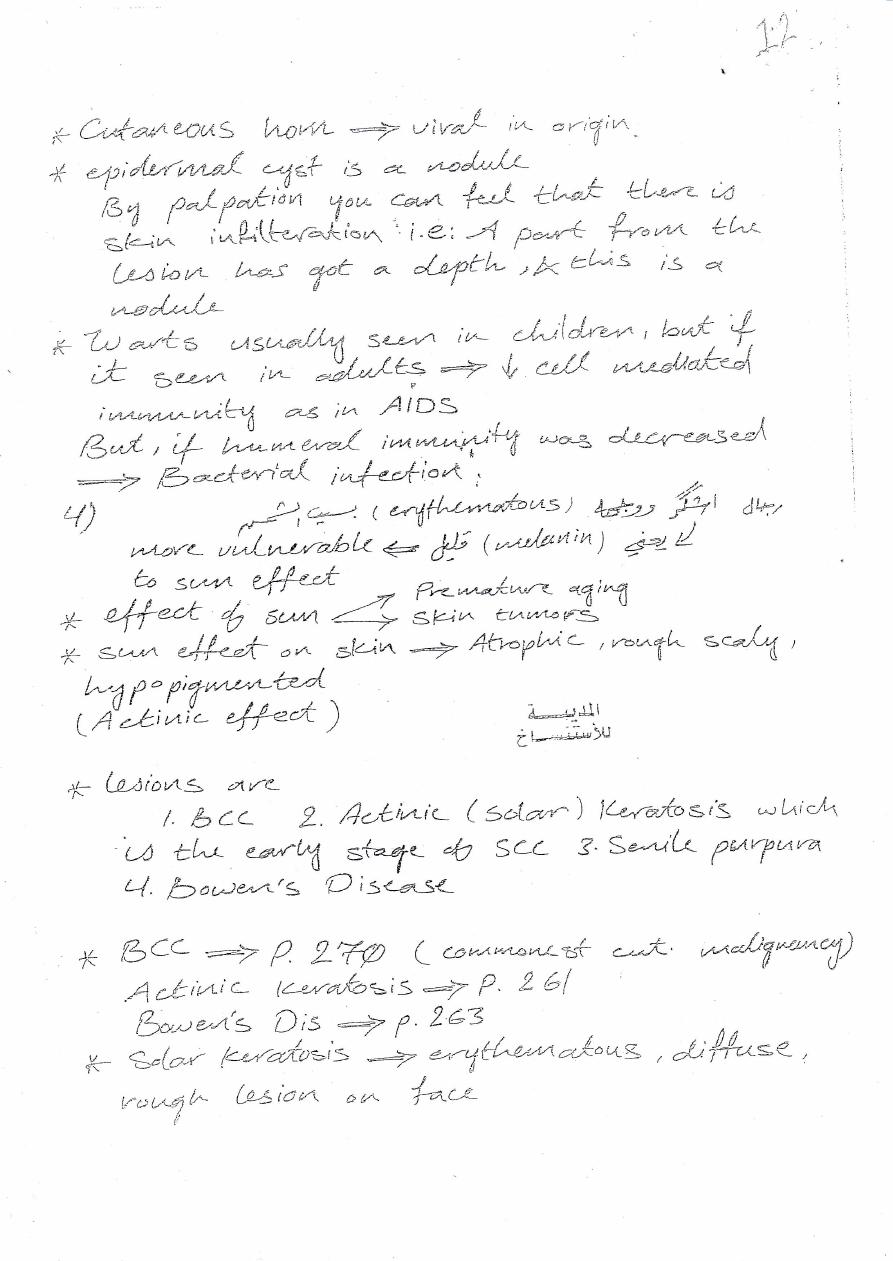 12
* Cutaneous horn ⇒ viral in origin.
* epidermal cyst is a nodule
By palpation you can feel that there is
skin infilteration i.e: A part from the
lesion has got a depth, & this is a
nodule
* Warts usually seen in children, but if
it seen in adults ⇒ ↓ cell mediated
immunity as in AIDS
But, if humeral immunity was decreased
⇒ Bacterial infection.
4) (erythematous) رجال
more vulnerable ⇐ قليل (melanin) لا
to sun effect
* effect of sun → Premature aging
→ skin tumors
* sun effect on skin → Atrophic, rough scaly,
hypopigmented
(Actinic effect)
المدينة
للأستنساخ
* Lesions are
1. BCC 2. Actinic (solar) Keratosis which
is the early stage of SCC 3. Senile purpura
4. Bowen's Disease
* BCC ⇒ P. 270 (commonest cut. malignancy)
Actinic Keratosis ⇒ P. 261
Bowen's Dis ⇒ p. 263
* Solar Keratosis ⇒ erythematous, diffuse,
rough lesion on face